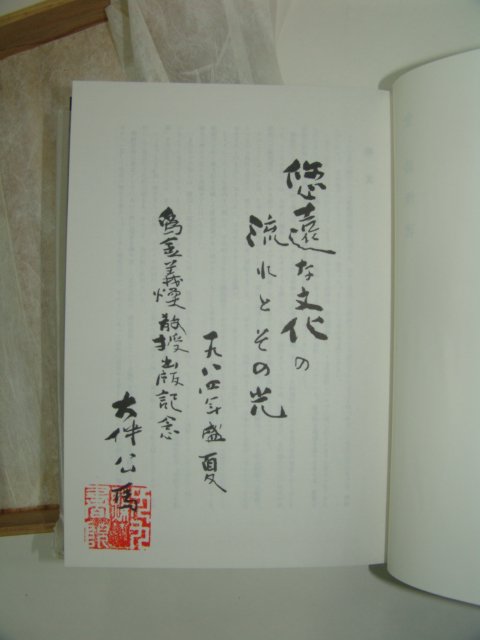 悠遠な文化の
流れとその光
一九八四年盛夏
為金義煥教授出版記念
大伴公馬